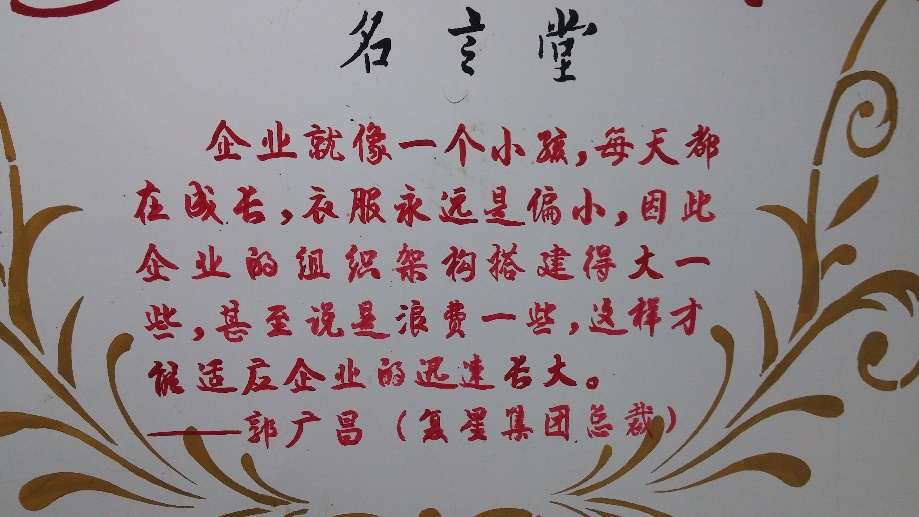 名言堂
企业就像一个小孩,每天都
在成长,衣服永远是偏小,因此
企业的组织架构搭建得大一
些,甚至说是浪费一些,这样才
能适应企业的迅速长大。
——郭广昌(复星集团总裁)